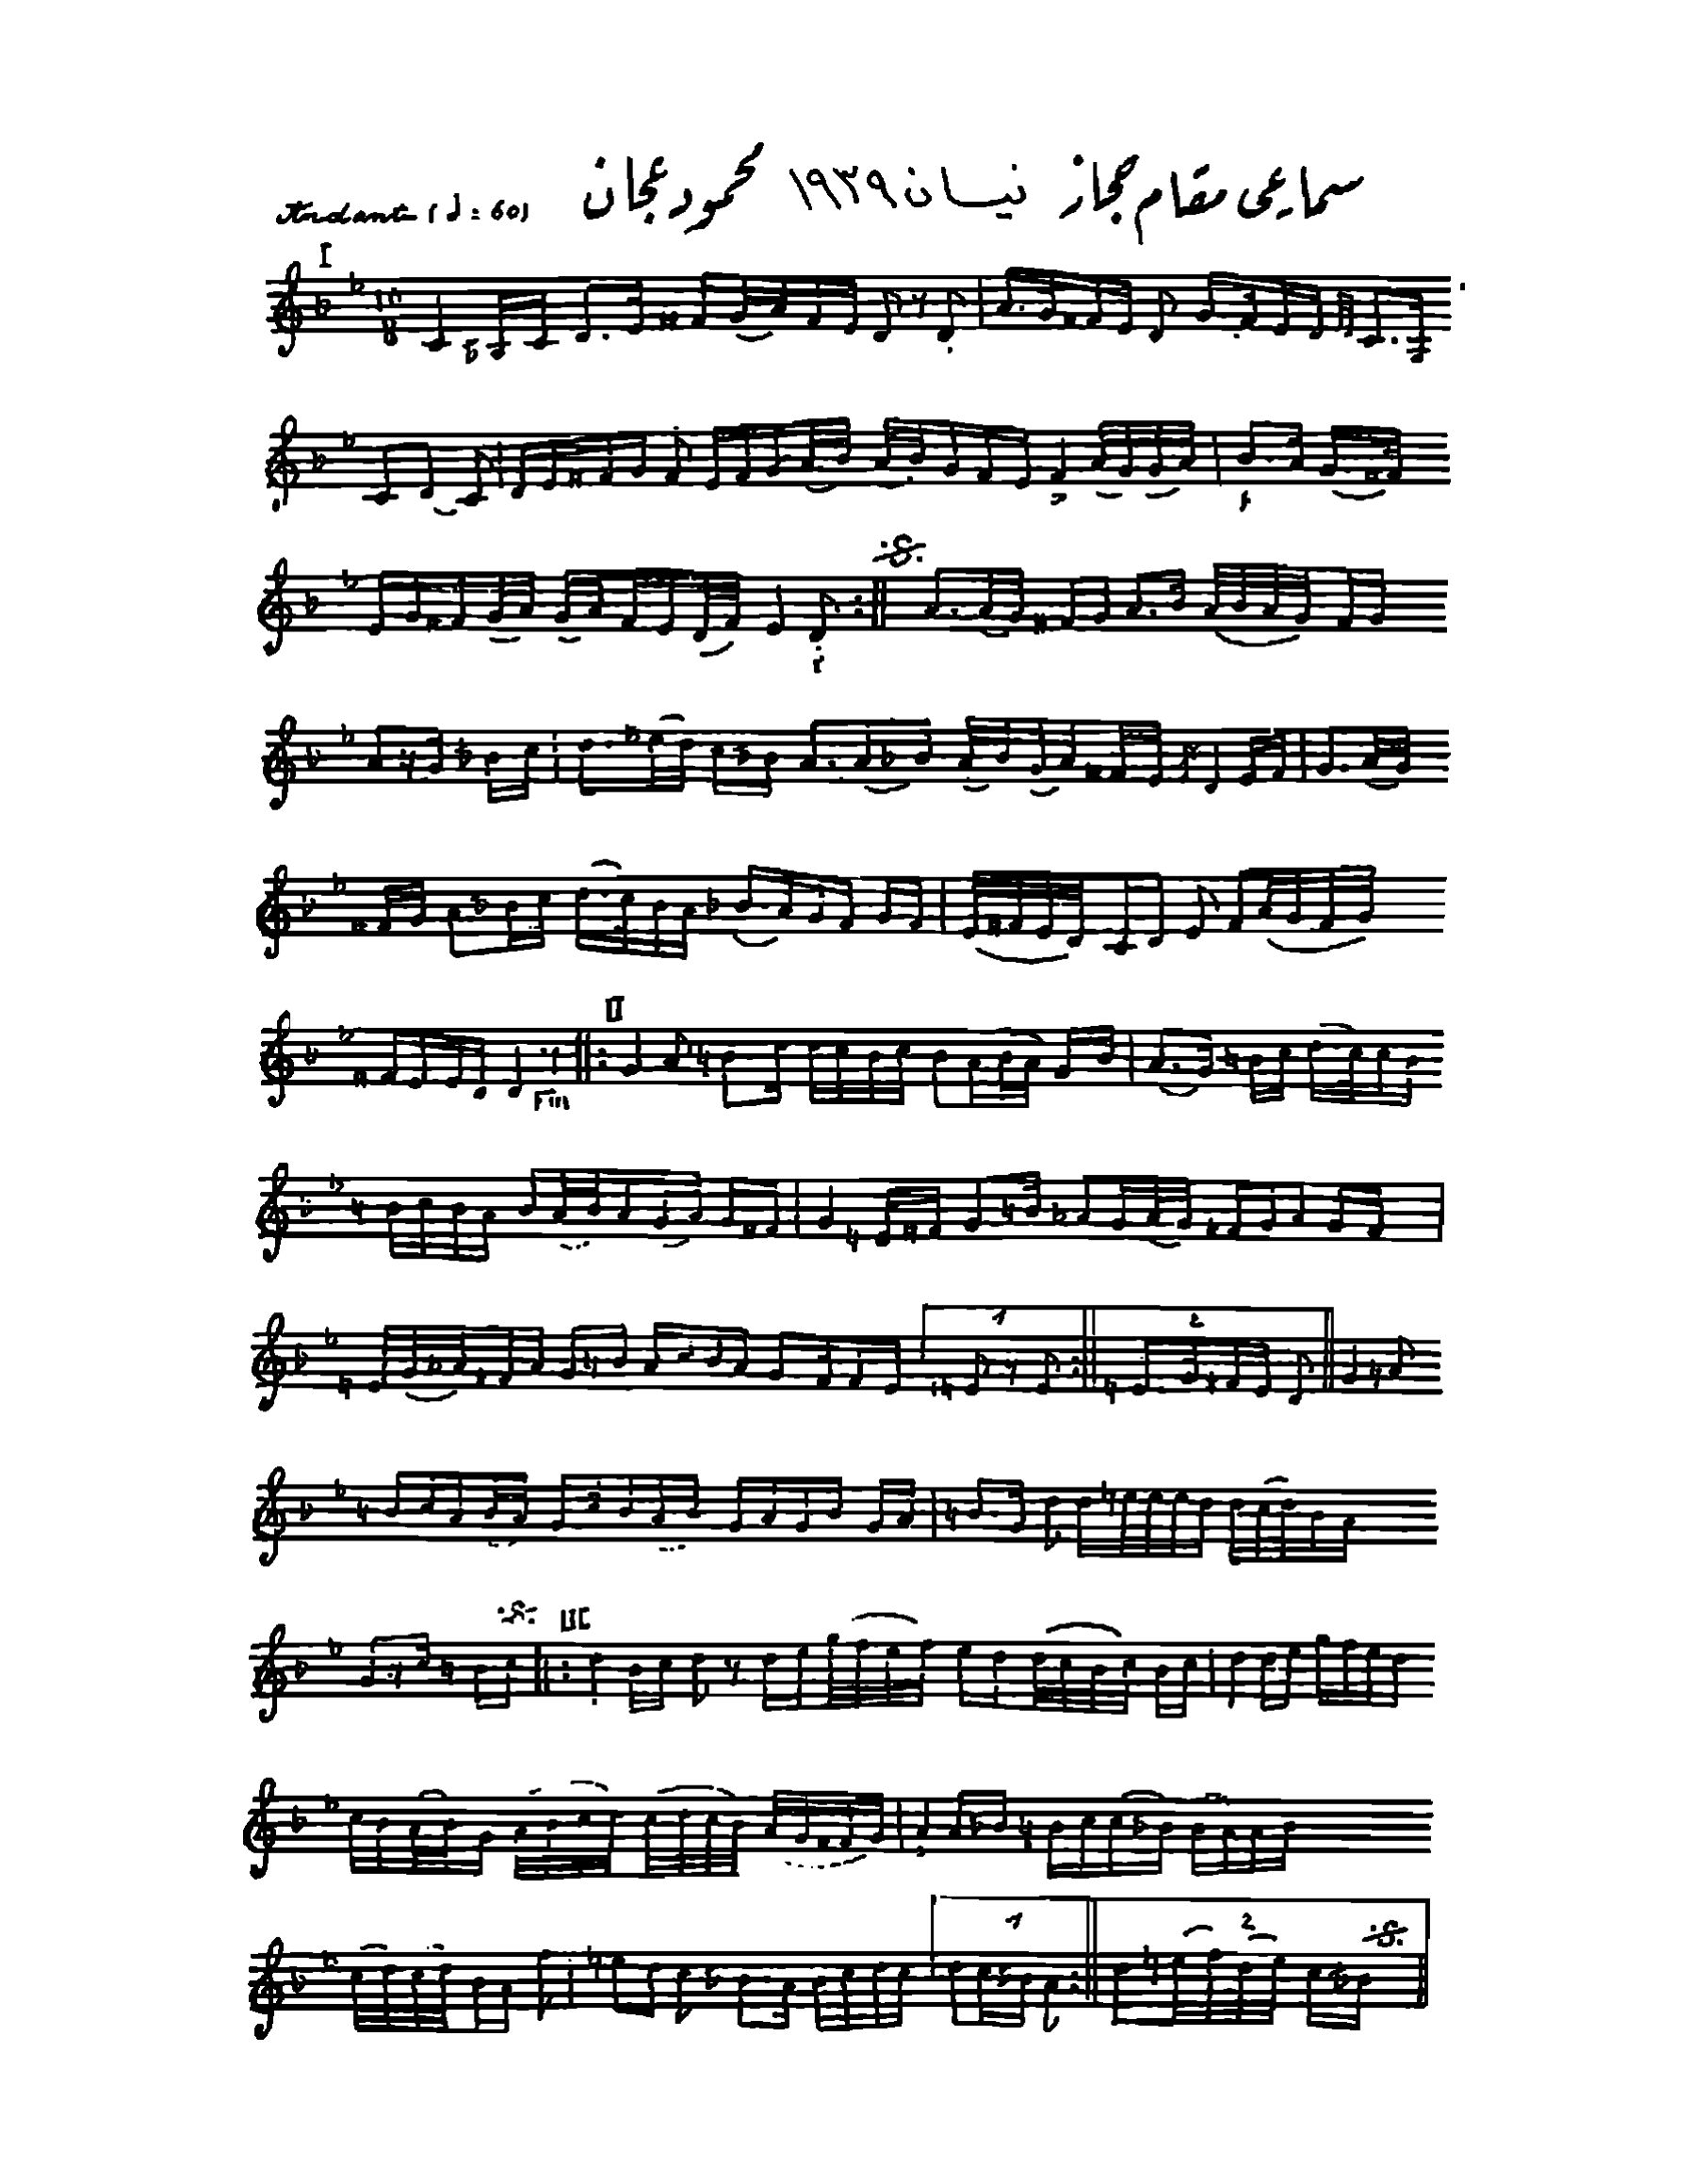 سماعي مقام حجاز نيسان ١٩٣٩ محمود عجان
Andante (♩ = 60)
I
10
8
II
Fin
1 2
III
1 2